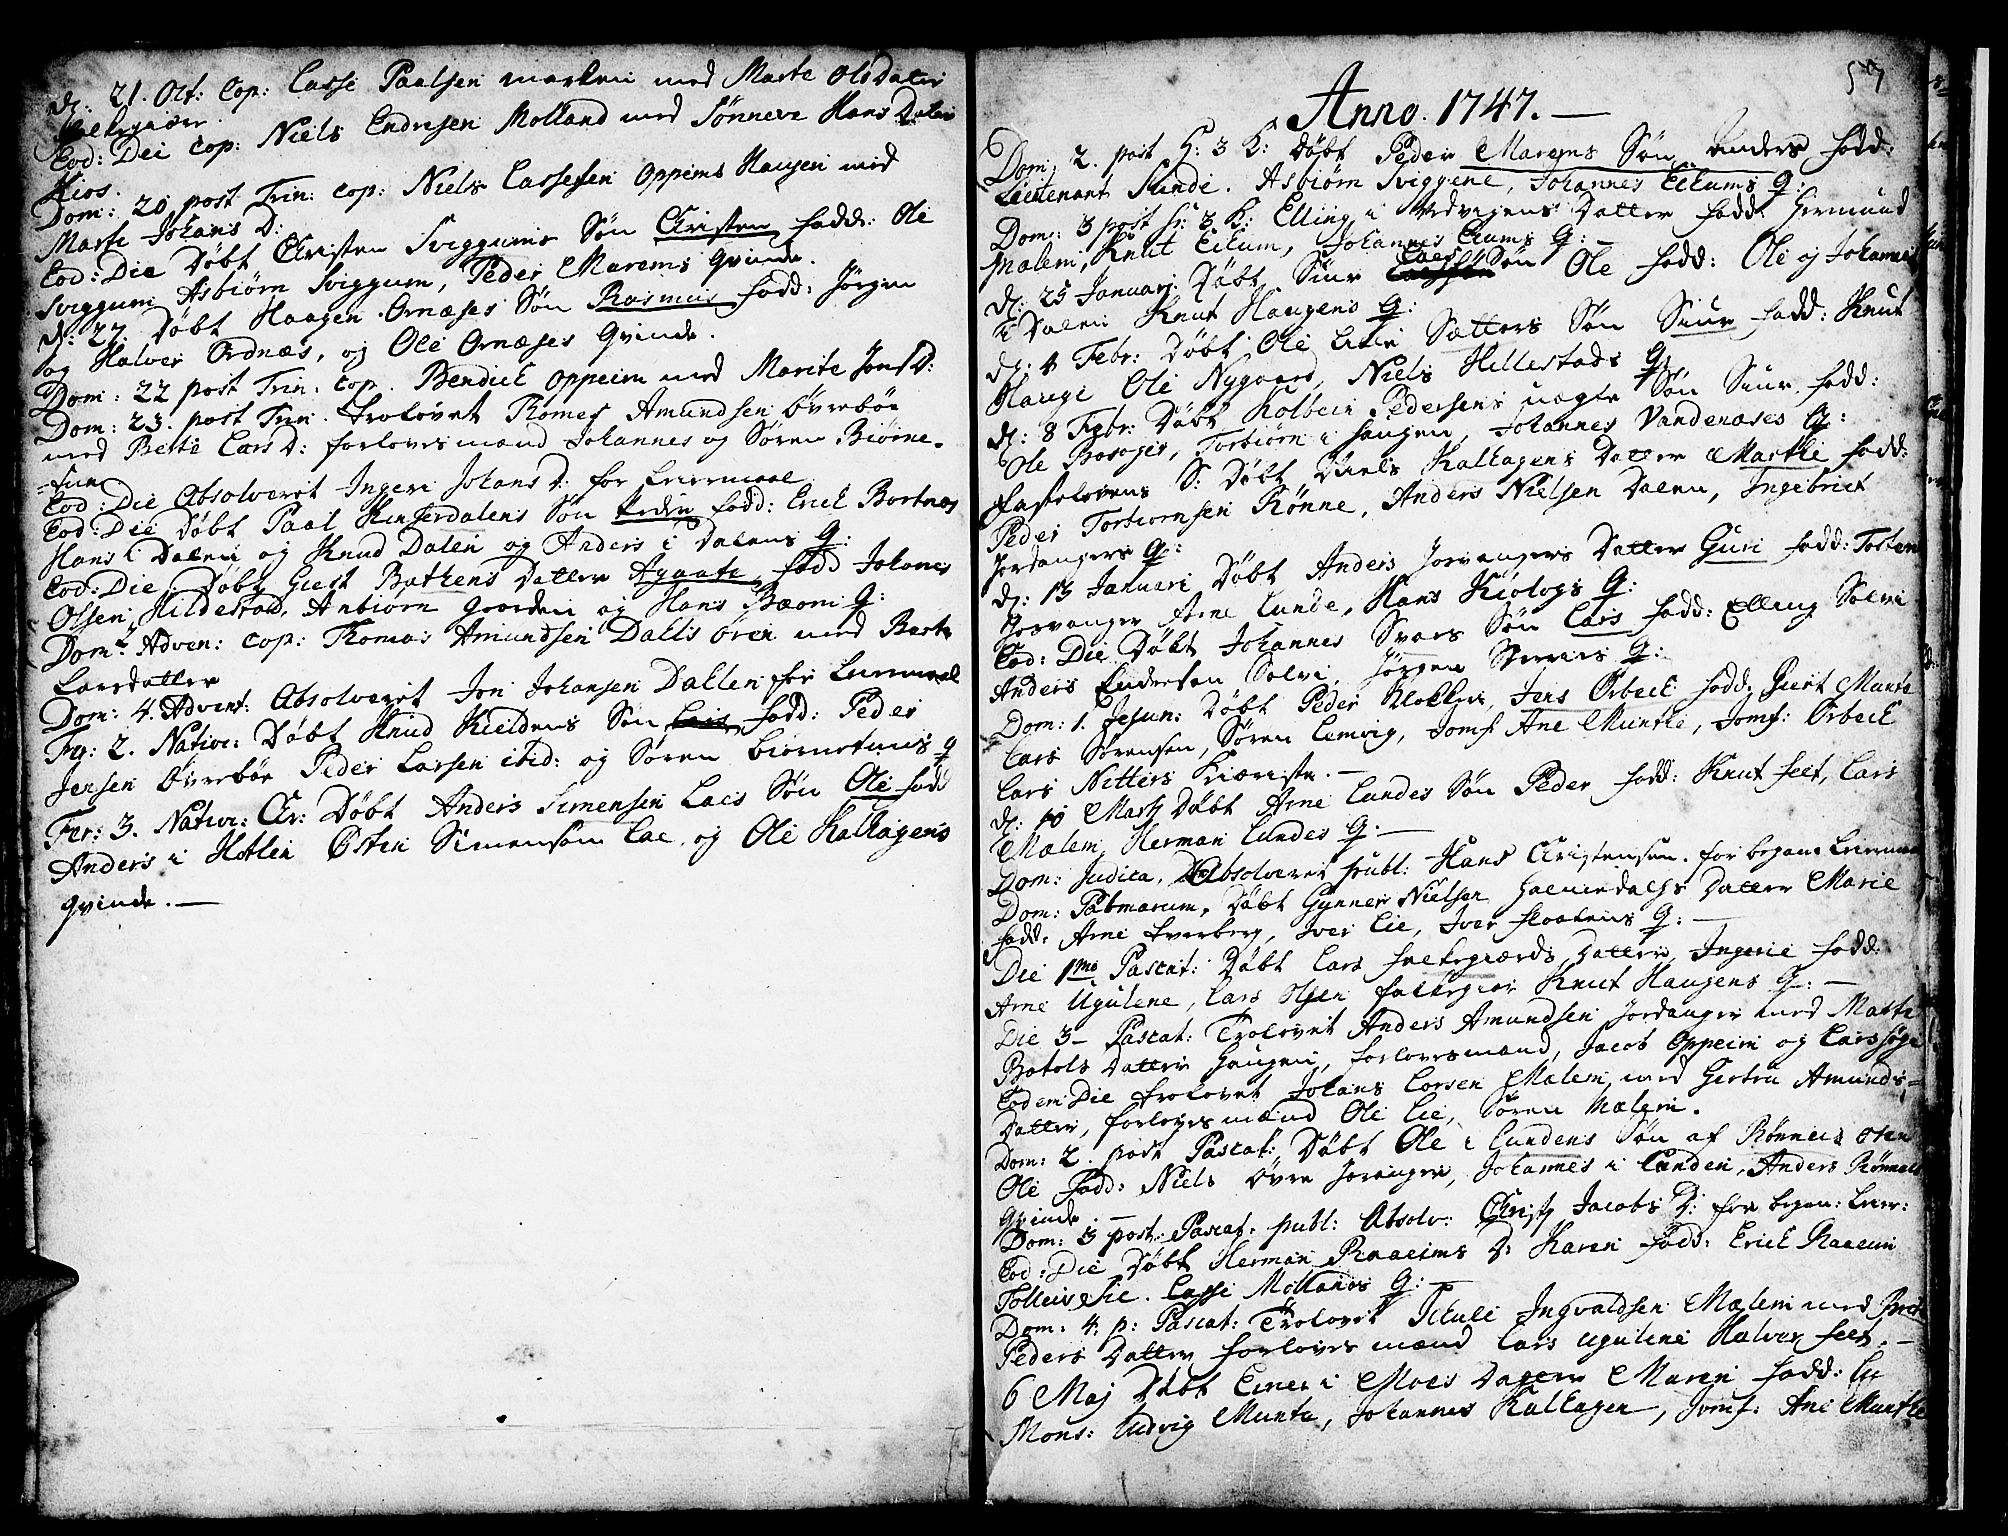 d: 21. Oct: Cop: Lasse Paalsen marken med Marte Olsdatter
Eod: Dei Cop: Niels Endresen Molland med Sønneva Hans Datter
Kios.
Dom: 20 post Trin: Cop: Niels Lassesen Oppems Haugen med
Marte Johans D:
Eod: Die Døbt Christen Sviggums Søn Christen fadd: Ole
Sviggum Asbiørn Sviggum, Peder Marems Qvinde.
d: 27. Døbt Haagen Ornæses Søn Rasmus fadd: Jørgen
og Halvor Ordnæs, og Ole Ornæses Qvinde.
Dom: 22 post Trin: Cop. Bendick Oppeim med Marite Jons D:
Dom: 23. post Trin. Trolovet Tomes Amundsen Øvrebøe
med Berte Lars D: forlovesmænd Johannes og Søren Biørne-
=tun
Eod: Die Absolveret Ingeri Johans D: for Leiermaal
Eod: Die Døbt Paal Kinserdalens Søn fadd: Erick Bortnæs
Hans i Dalen og Knud Dalen og Anders i Dalens Q:
Eod: Die Døbt Giest Bathens Datter Agaata fadd Johanes
Olsen Hildestad, Anbiørn gaarden og Hans Bæom Q:
Dom: 2 Adven: Cop: Thomas Amundsen Dahls øren med Berte
Larsdatter
Dom: 4. Advent: Absolveret Jon Johansen Dahlen for Leiermaal
Fer: 2. Nativ: Døbt Knud Kieldens Søn Lars fadd: Peder
Jensen Øvrebøe Peder Larsen ibid: og Søren Biørnetuns Q
Fer: 3. Nativ: Chr: Døbt Anders Simensen Laes Søn Ole fadd
Anders i Hotlen Østen Simensøn Lae, og Ole Kalhagens
Qvinde. —
57
Anno. 1747. —
Dom, 2. post H: 3 K: Døbt Peder Marems Søn Anders fadd:
Lieutenant Sunde. Asbiørn Sviggene, Johannes Eikums Q:
Dom: 3 post H: 3 K: Elling i Vedvigens Datter fadd: Giermund
Malem, Knut Eikum, Johannes Eikums Q: —
d: 25 Januari Døbt Siur Laes Søn Ole fadd: Ole og Johannes
i Dalen Knut Haugens Q:
d: 1 Febr: Døbt Ole Sætters Søn Siur fadd: Knut
Hauge Ole Nygaard, Niels Hillestads Q:
d: 8 Febr: Døbt Kolbein Pedersens uægte Søn Siur. fadd:
Ole Torbiørn i haugen, Johannes Vandenæses Q:
Fastelavens S: Døbt Niels Kalhagens Datter Marthe fadd:
Peder Torbiørnsen Rønne, Anders Nielsen Dalen, Ingebrict
Jordangers Q:
d: 13 Januari Døbt Anders Jorvangers Datter Guri fadd: Tosten
Jorvanger Arne Lunde, Hans Kiølogs Q:
Eod: Die Døbt Johannes Svars Søn Lars fadd: Elling Solvi
Anders Endresen Solvi, Jørgen Q:
Dom: 1. Jejun: Døbt Peder Klokker, Jens Ørbeck fadd: Giert Munte
Lars Sørensen, Søren Lemvig, Jomf: Ane Munthe, Jomf: Ørbeck
Lars Nitters Kiæreste. —
d: 10 Marty Døbt Arne Lundes Søn Peder fadd: Knut Feet, Lars
Mælem, Herman Lundes Q: —
Dom: Judica, Absolveret publ: Hans Christensen. for began: Leiermaal
Dom: Palmarum, Døbt Gynner Nielsen Datter Marie
fadd: Arne Kverberg, Iver Lie, Iver Floatens Q: —
Die 1mo Pascat: Døbt Lars Falkegiærds Datter, Ingerie fadd:
Arne Ugulene, Lars Olsen Falkegier Knut Haugens Q: —
Die 3— Pascat: Trolovet Anders Amundsen Jordanger med Matte
Botols Datter Haugen, forlovesmænd, Jacob Oppeim og Lars
Eodem Die trolovet Johans Larsen Mælem, med Giertru Amunds=
Datter, forloves mænd Ole Lie, Søren Mælem.
Dom: 2. post Pascat: Døbt Ole i Lundens Søn af Rønneis
Ole fadd: Niels Øvre Joranger, Johannes i Lunden, Anders Rønneis
Qvinde. —
Dom: 3 post: Pascat: publ: Absolv: Christ: Jacobs D: for began: Leier:
Eod: Die Døbt Herman Raaeims D: Karen fadd: Erick Raaeim
Tolleiv Lie. Lasse Mollands Q: —
Dom: 4. p: Pascat: Trolovet Schule Ingvaldsen Mælem med Brite
Peders Datter forloves mænd Lars Ugulene Halvor Feet. —
6 Maj Døbt Einer i Moes Datter Maren fadd:
Mons: Ludvig Munte, Johannes Kalhagen, Jomf: Ane Munthe